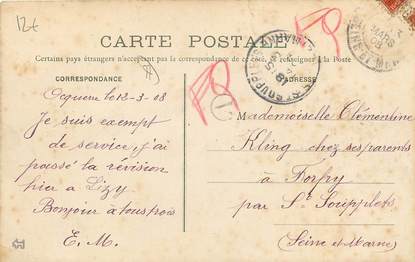 12t
CARTE POSTALE
Certains pays étrangers n'acceptant pas la correspondance de ce côté, se renseigner à la Poste
CORRESPONDANCE
ADRESSE
le 12-3-08
Je suis exempt
de service, j'ai
passé la révision
hier a Lizy
Bonjour à tous trois
E. M.
Mademoiselle Clémentine
Kling chez ses parents
à Forfry
par St Soupplets
(Seine et Marne)